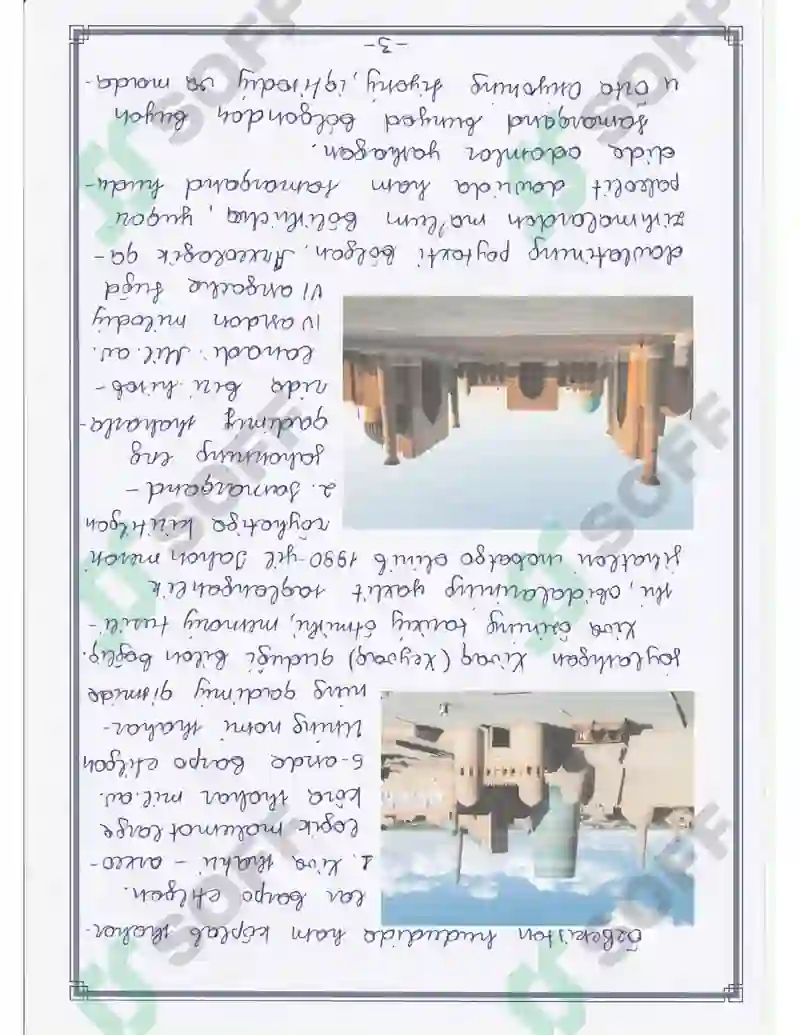 Özbekiston hududida ham köplab shahar-
lar barpo etilgan.
1. Xiva shahri - arxeo-
logik malumotlarga
köra shahar mil.av.
5-asrda barpo etilgan
Uning nomi shahar-
ning qadimiy qismida
joylashgan Xivaq (Xeyvaq) qudug'i bilan bog'liq.
Xiva özining tarixiy ötmishi, me'moriy tuzili-
shi, obidalarining yaxlit saqlanganlik
jihatlari inobatga olinib 1990-yil Jahon merosi
röyhatiga kiritilgan
2. Samarqand -
jahonning eng
qadimiy shaharla-
ridan biri hisob-
lanadi. Mil.av.
IV asrdan milodiy
VI asrgacha Sug'd
davlatining poytaxti bölgan. Arxeologik qa-
zishmalardan ma'lum bölishicha, yuqori
paleolit davrida ham Samarqand hudu-
dida odamlar yashagan.
Samarqand bunyod bölgandan buyon
u Örta Osiyoning siyosiy, iqtisodiy va mada-
-3-
SOFF
SOFF
SOFF
SOFF
SOFF
SOFF